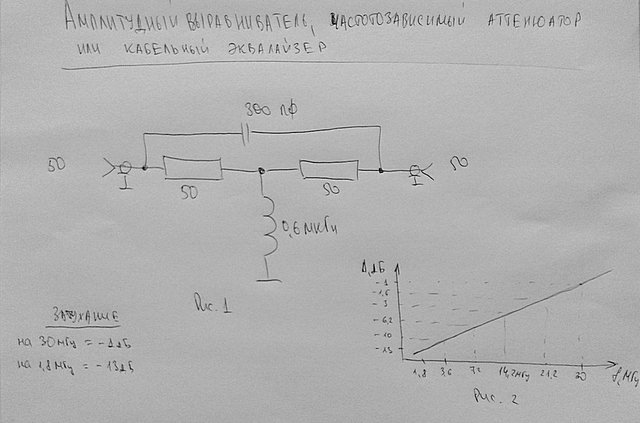 АМПЛИТУДНЫЙ ВЫРАВНИВАТЕЛЬ, ЧАСТОТОЗАВИСИМЫЙ АТТЕНЮАТОР
ИЛИ КАБЕЛЬНЫЙ ЭКВАЛАЙЗЕР
300 пФ
50
50
50
50
0,6 мкГн
Рис. 1
ЗАТУХАНИЕ
на 30 мГц = -1дБ
на 1,8 мГц = -13дБ
А, дБ
-1
-1,6
-3
-6,2
-10
-13
1,8 3,6 7,2 14,2мГц 21,2 30 f, мГц
Рис. 2